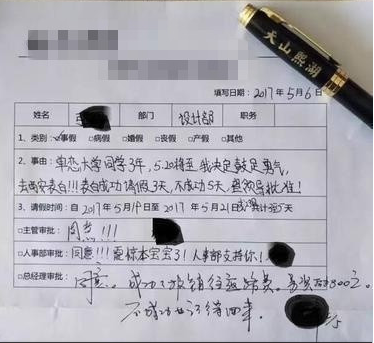 天山熙湖
填写日期：2017年5月6日
姓名 部门 设计部 职务
1、类别：☑事假 □病假 □婚假 □丧假 □产假 □其他
2、事由：单恋大学同学3年，5.20将至我决定鼓足勇气，
去西安表白!!!表白成功请假3天，不成功5天，恳领导批准！
3、请假时间：自2017年5月19日至2017年5月21日 共计 天
□主管审批：同意!!!
□人事部审批：同意!!!震惊本宝宝了！人事部支持你！
□总经理审批：同意。成功了报销往返路费。